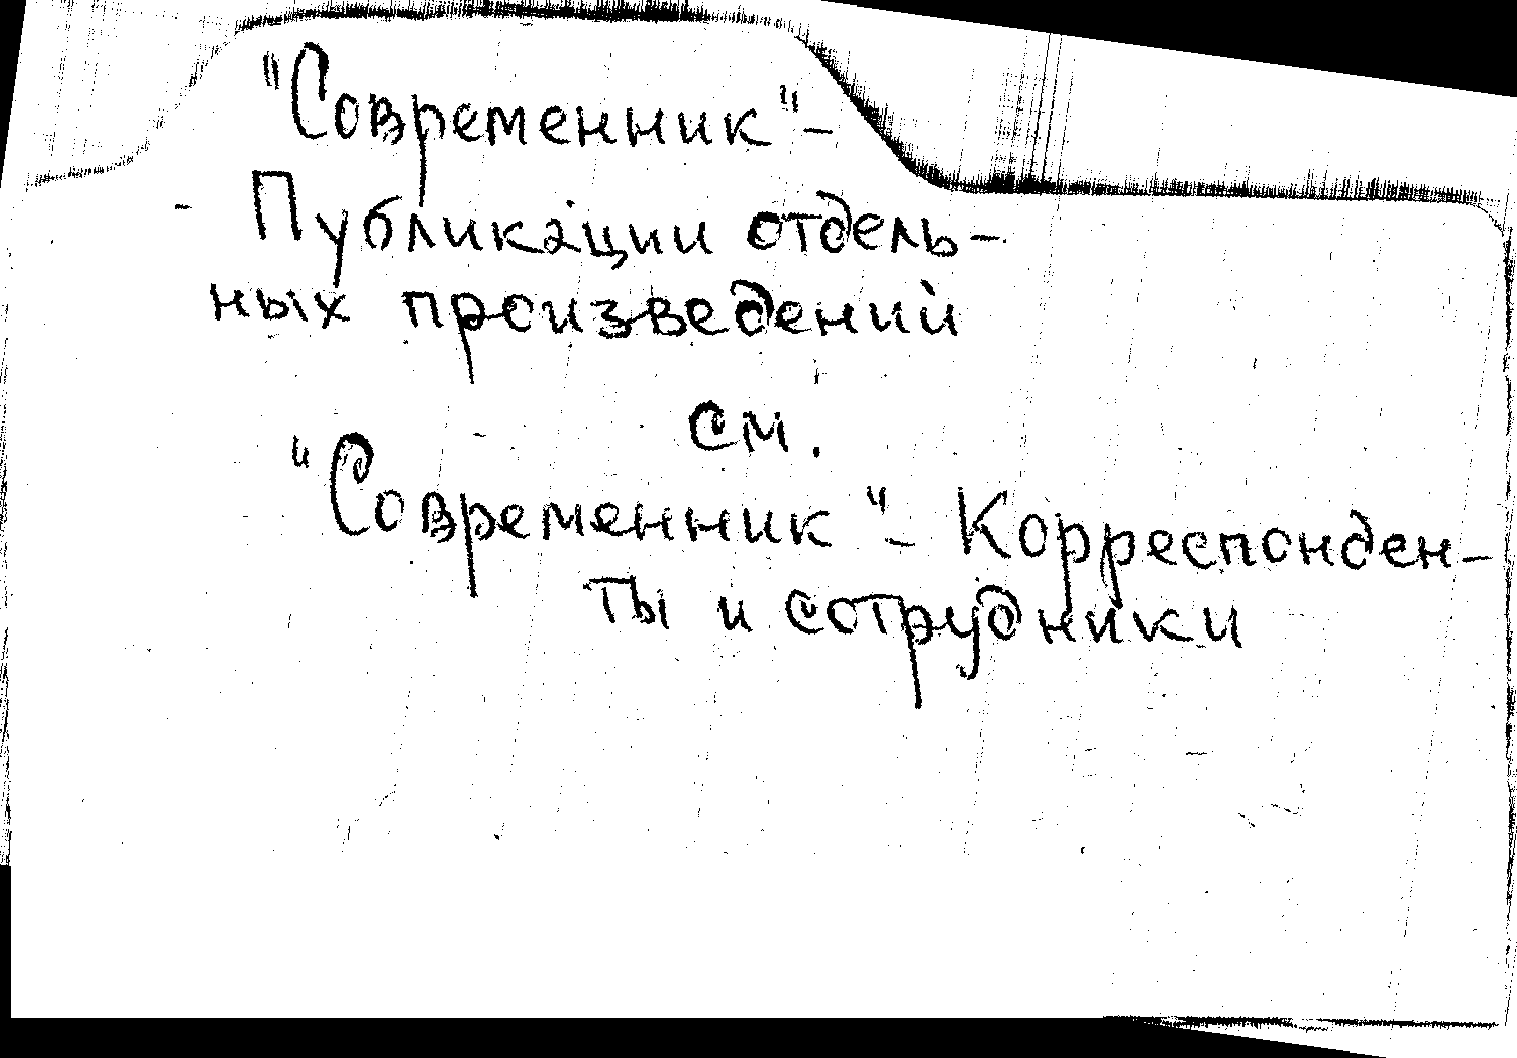 "Современник" –
- Публикации отдель-
ных произведений
см.
"Современник" – Корреспонден-
ты и сотрудники